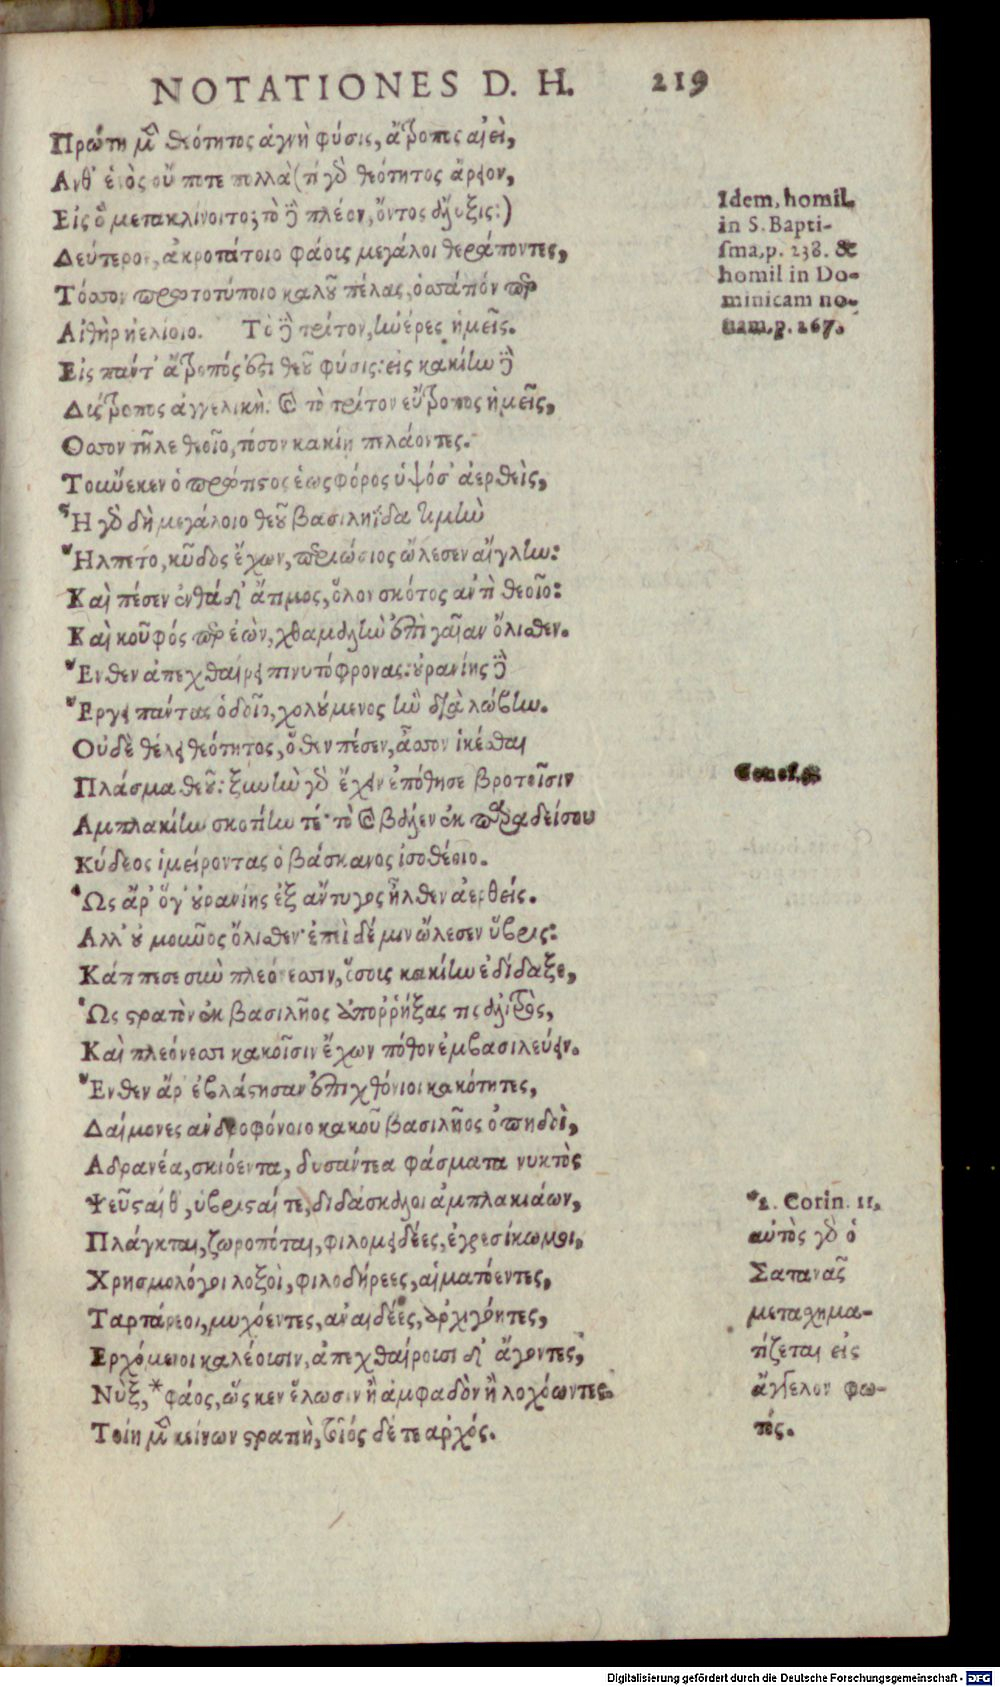 NOTATIONES D. H. 219
Πρώτη μὲν θεότητος ἁγνὴ φύσις, ἄτροπος αἰεὶ,
Ανθ' ἑνὸς οὔ ποτε πολλὰ (τί γὰρ θεότητος ἄρειον,
Εἰς ὃ μετακλίνοιτο; τὸ δὲ πλέον, ὄντος ἄλυξις:)
Δεύτερον, ἀκροτάτοιο φάοις μεγάλοι θεράποντες,
Τόσσον πρωτοτύποιο καλοῦ πέλας, ὁσσάπόν περ
Αἰθὴρ ἠελίοιο. Τὸ δὲ τρίτον, ἠέρες ἡμεῖς.
Εἰς πάντ' ἄτροπός ἐστι θεοῦ φύσις: εἰς κακίην δὲ
Δύςτροπος ἀγγελικὴ. καὶ τὸ τρίτον εὔτροπος ἡμεῖς,
Οσσον τῆλε θεοῖο, τόσον κακίῃ πελάοντες.
Τοὔνεκεν ὁ πρώτιστος ἑωςφόρος ὑψόσ' ἀερθεὶς,
Ἦ γὰρ δὴ μεγάλοιο θεοῦ βασιληΐδα τιμὴν
Ἤλπετο, κῦδος ἔχων, περιώσιος ὤλεσεν αἴγλην:
Καὶ πέσεν ἐνθάδ' ἄτιμος, ὅλον σκότος ἀντὶ θεοῖο:
Καὶ κοῦφός περ ἐὼν, χθαμαλὴν ἐπὶ γαῖαν ὄλισθεν.
Ἔνθεν ἀπεχθαίρει πινυτόφρονας: οὐρανίης δὲ
Ἔργει πάντας ὁδοῖο, χολούμενος ἣν διὰ λώβην.
Οὐδὲ θέλει θεότητος, ὅθεν πέσεν, ἆσσον ἱκέσθαι
Πλάσμα θεοῦ: ξυνὴν γὰρ ἔχειν ἐπόθησε βροτοῖσιν
Αμπλακίην σκοτίην τέ· τὸ καὶ βάλεν ἐκ παραδείσου
Κύδεος ἱμείροντας ὁ βάσκανος ἰσοθέοιο.
Ὣς ἄρ' ὅγ' οὐρανίης ἐξ ἄντυγος ἦλθεν ἀερθείς.
Αλλ' οὐ μοῦνος ὄλισθεν· ἐπεὶ δέ μιν ὤλεσεν ὕβρις:
Κάππεσε σὺν πλεόνεσσιν, ὅσοις κακίην ἐδίδαξε,
Ὡς στρατὸν ἐκ βασιλῆος ἀποῤῥήξας τις ἀλιτρὸς,
Καὶ πλεόνεσσι κακοῖσιν ἔχων πόθον ἐμβασιλεύειν.
Ἔνθεν ἄρ' ἐβλάστησαν ἐπιχθόνιοι κακότητες,
Δαίμονες ἀνδροφόνοιο κακοῦ βασιλῆος ὀπηδοὶ,
Αδρανέα, σκιόεντα, δυσάντεα φάσματα νυκτὸς
Ψεῦσταίθ', ὑβρισταί τε, διδάσκαλοι ἀμπλακιάων,
Πλάγκται, ζωροπόται, φιλομειδέες, ἐγρεσίκωμοι,
Χρησμολόγοι λοξοὶ, φιλοδήρεες, αἱματόεντες,
Ταρτάρεοι, μυχόεντες, ἀναιδέες, ἀρχιγόητες,
Ερχόμενοι καλέουσιν, ἀπεχθαίρουσι δ' ἄγοντες,
Νὺξ,* φάος, ὥς κεν ἕλωσιν ἢ ἀμφαδὸν ἢ λοχόωντες.
Τοίη μὲν κείνων στρατιὴ, τοῖός δέ τε ἀρχός.
Idem, homil.
in S. Bapti-
sma, p. 238. &
homil in Do-
minicam no-
uam, p. 267.
Genes. 3.
* 2. Corin. 11.
αὐτὸς γὰρ ὁ
Σατανᾶς
μετασχημα-
τίζεται εἰς
ἄγγελον φω-
τός.
Digitalisierung gefördert durch die Deutsche Forschungsgemeinschaft - DFG